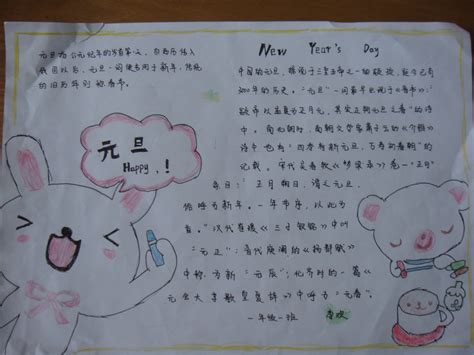 元旦为公元纪年的岁首第一天,自西历传入
我国以后,元旦一词便专用于新年,传统
的旧历年则称春节。
New Year's Day
中国的元旦,据传说于三皇五帝之一的颛顼,距今已有
3000年的历史。"元旦"一词最早出现于《晋书》:
颛帝以孟夏正月为元,其实正朔元旦之春"的诗
中。南北朝时,南朝文学家萧子云的《介雅》
诗中也有"四季新元旦,万寿初春朝"的
记载。宋代吴自牧《梦粱录》卷一"正月"
条目:"正月朔日,谓之元旦,
俗呼为新年。一年节序,以此为
首。"汉代崔瑗《三子钗铭》中叫
"元正";晋代庾阐的《扬都赋》
中称为新"元辰";北齐时的一篇《
元会大享歌皇夏辞》中呼为"元春"。
一年级一班
元旦
Happy!